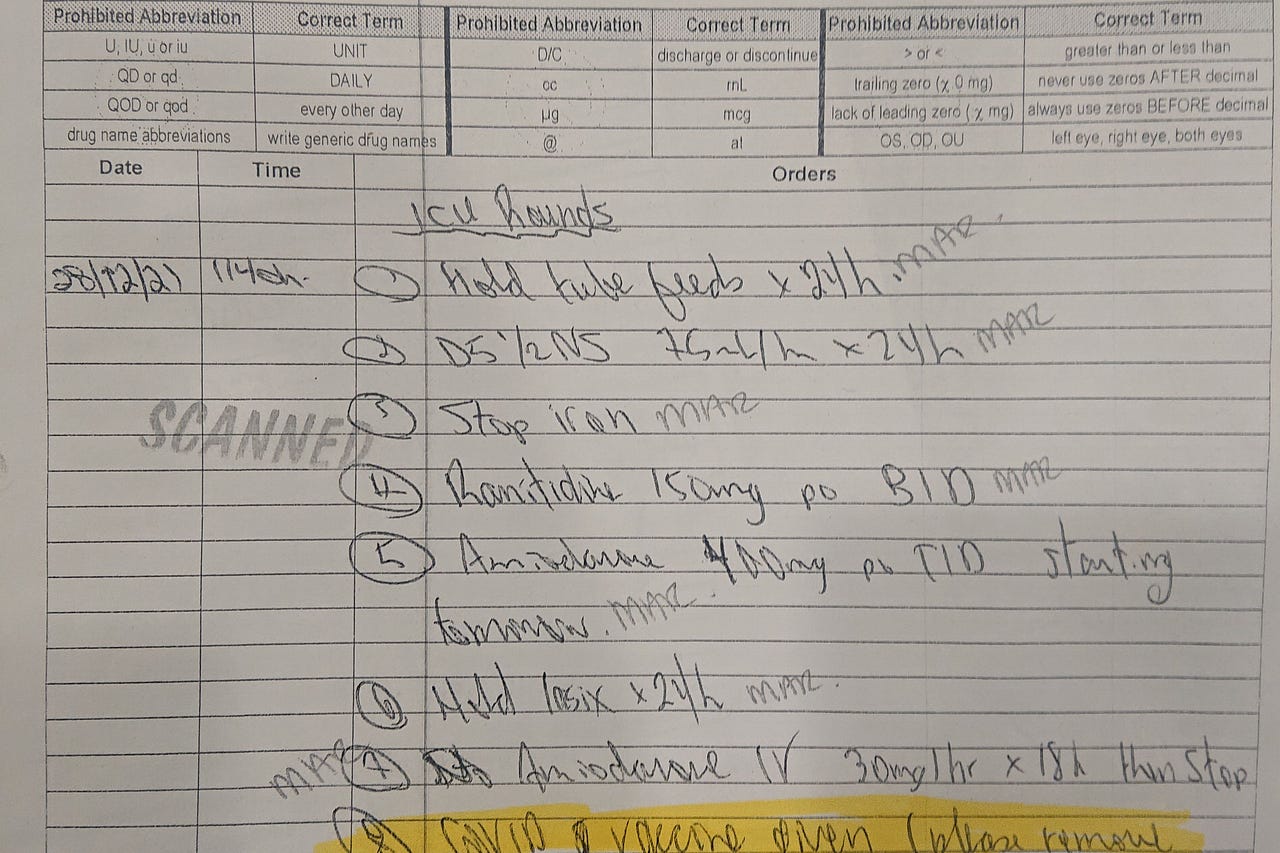 Prohibited Abbreviation Correct Term Prohibited Abbreviation Correct Term Prohibited Abbreviation Correct Term
U, IU, u or iu UNIT D/C discharge or discontinue > or < greater than or less than
QD or qd DAILY cc mL trailing zero (χ.0 mg) never use zeros AFTER decimal
QOD or qod every other day µg mcg lack of leading zero (.χ mg) always use zeros BEFORE decimal
drug name abbreviations write generic drug names @ at OS, OD, OU left eye, right eye, both eyes
Date Time Orders
ICU Rounds
28/12/21 1140h. 1 Hold tube feeds x 24h. MAR
2 D5 1/2NS 75mL/h x 24h MAR
SCANNED
3 Stop iron MAR
4 Ranitidine 150mg po BID MAR
5 Amiodarone 400mg po TID starting
tomorrow. MAR
6 Hold lasix x 24h MAR.
MAR 7 Amiodarone IV 30mg/hr x 18h then stop
8 COVID vaccine given (please remove